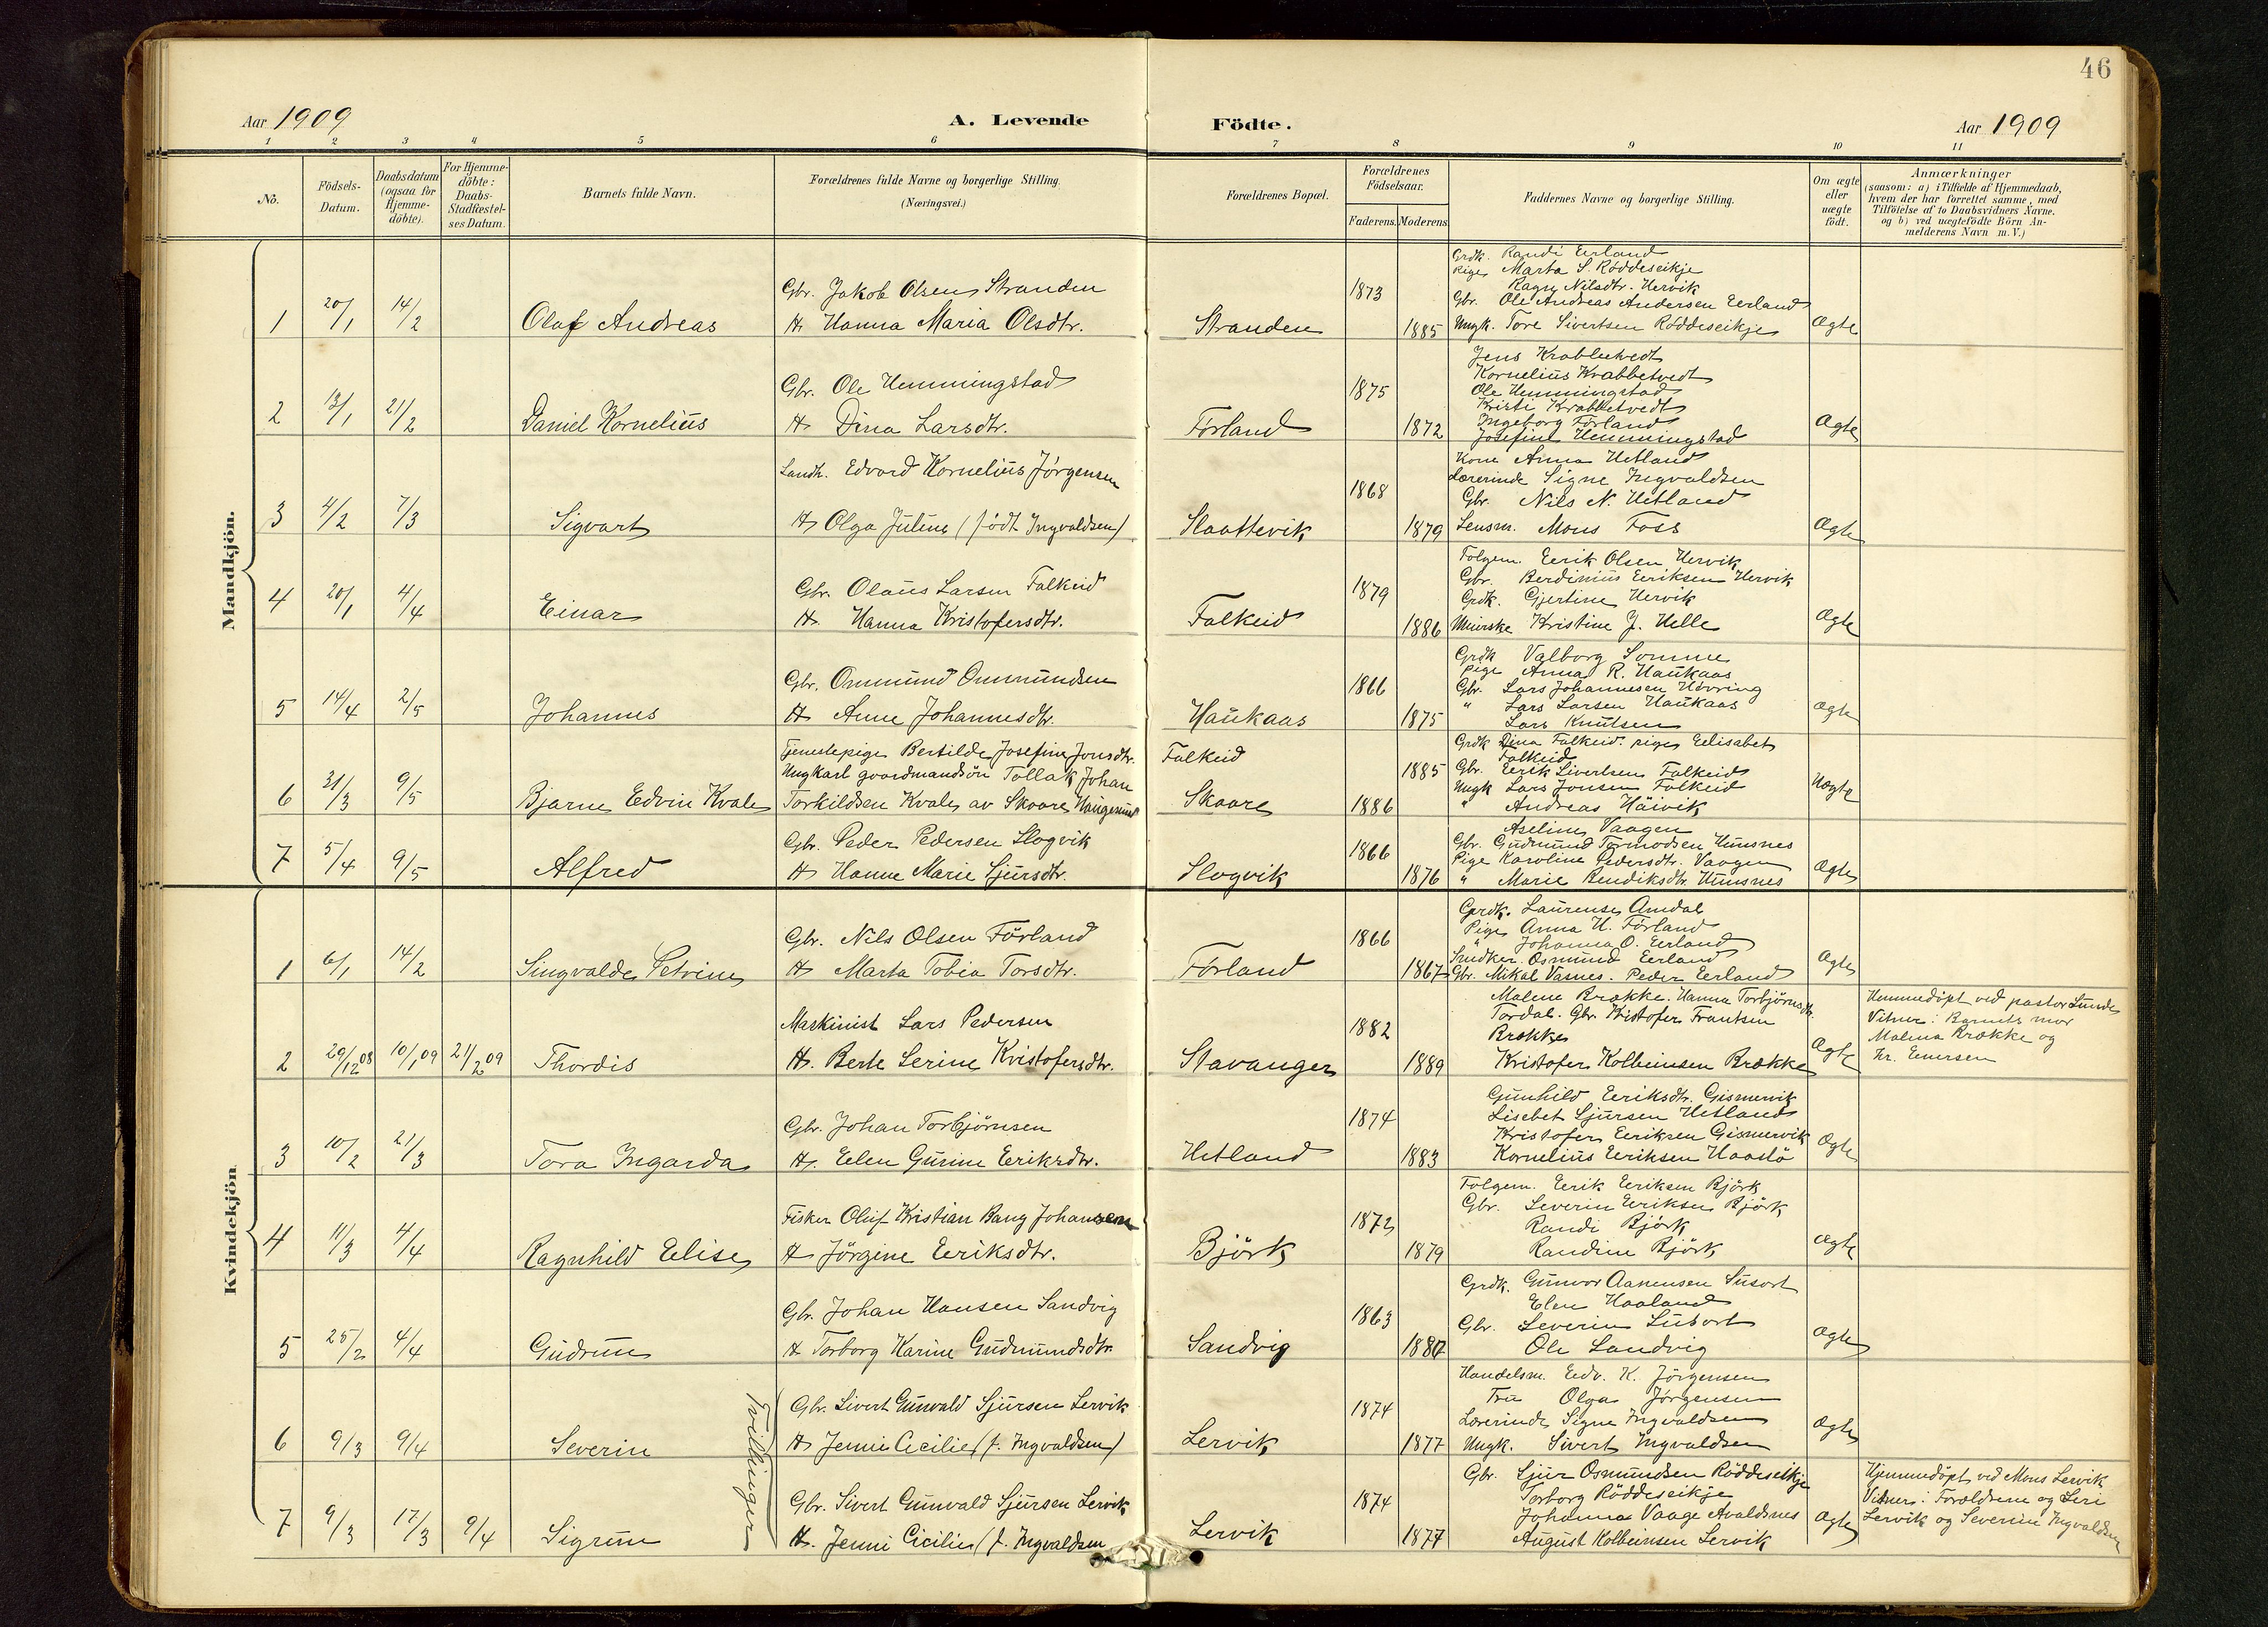 46
Aar 1909
A. Levende
Födte.
Aar 1909
1 2 3 4 5 6 7 8 9 10 11
No.
Födsels-Datum.
Daabsdatum (ogsaa for Hjemme-döbte).
For Hjemme-döbte: Daabs-Stadfæstel-ses Datum.
Barnets fulde Navn.
Forældrenes fulde Navne og borgerlige Stilling.
(Næringsvei.)
Forældrenes Bopæl.
Forældrenes Födselsaar.
Faderens. Moderens.
Faddernes Navne og borgerlige Stilling.
Om ægte eller uægte födt.
Anmærkninger
(saasom: a) i Tilfælde af Hjemmedaab,
hvem der har forrettet samme, med
Tilföielse af to Daabsvidners Navne.
og b) ved uægtefödte Börn An-
melderens Navn m. V.)
Mandkjön.
1 20/1 14/2 Olaf Andreas
Gbr. Jakob Olsen Stranden
H. Hanna Maria Olsdtr.
Stranden 1873 1885
Grdk. Randi Eerland
Pige Marta S. Röddeseikje
Ragn. Nilsdtr. Hervik
Gbr. Ole Andreas Andersen Eerland
Ungk. Tore Sivertsen Röddeseikje
Ægte
2 13/1 21/2 Daniel Kornelius
Gbr. Ole Hemmingstad
H. Dina Larsdtr.
Förland 1875 1872
Jens Krabbetvedt
Kornelius Krabbetvedt
Ole Hemmingstad
Kristi Krabbetvedt
Ingeborg Förland
Josefine Hemmingstad
Ægte
3 4/2 7/3 Sigvart
Landh. Edvard Kornelius Jörgensen
H. Olga Juline (född Ingvaldsen)
Slaattevik 1868 1879
Kone Anna Hetland
Lærerinde Signe Ingvaldsen
Gbr. Nils N. Hetland
Lensm. Mons Foss
Ægte
4 20/1 4/4 Einar
Gbr. Olaus Larsen Falkeid
H. Hanna Kristofersdtr.
Falkeid 1879 1886
Folgem. Eerik Olsen Hervik
Gbr. Berdinius Eeriksen Hervik
Grdk. Gjertine Hervik
Meierske Kristine J. Helle
Ægte
5 14/4 2/5 Johannes
Gbr. Ommund Ommundsen
H. Anne Johannesdtr.
Haukaas 1866 1875
Grdk Valborg Somme
Pige Anna R. Haukaas
Gbr. Lars Johannesen Hövring
" Lars Larsen Haukaas
Lars Knutsen
Ægte
6 31/3 9/5 Bjarne Edvin Kvale
Tjenestepige Bertilde Josefine Jonsdtr.
Ungkarl gaardmandsön Tollak Johan
Torkildsen Kvale av Skaare Haugesund
Falkeid
Skaare 1885 1886
Grdk Dina Falkeid. pige Eelisabet
Falkeid
Gbr. Eerik Sivertsen Falkeid
Ungk Lars Jonsen Falkeid
" Andreas Häivik
Uægte
7 5/4 9/5 Alfred
Gbr. Peder Pedersen Slogvik
H. Hanne Marie Sjursdtr.
Slogvik 1866 1876
Aseline Vaagen
Gbr. Gudmund Tormodsen Hunsnes
Pige Karoline Pedersdtr. Vaagen
" Marie Bendiksdtr. Hunsnes
Ægte
Kvindekjön
1 6/1 14/2 Singvalde Petrine
Gbr. Nils Olsen Förland
H. Marta Tobia Torsdtr.
Förland 1866 1867
Grdk. Laurense Amdal
Pige Anna H. Förland
" Johanna O. Eerland
Osmund Eerland
Gbr. Mikal Vasnes. Peder Eerland
Ægte
2 29/12 08 10/1 09 21/2 09 Thordis
Maskinist Lars Pedersen
H. Berte Serine Kristofersdtr.
Stavanger 1882 1889
Malene Brække. Hanna Torbjörnsdtr.
Tordal. Gbr. Kristofer Frantsen
Brække
Kristofer Kolbeinsen Brække
Ægte
Hemmedöpt ved pastor Lunde
Vitner: Barnets mor
Malena Brække og
Kr. Emersen
3 10/2 21/3 Tora Ingarda
Gbr. Johan Torbjörnsen
H. Eelen Gurine Eeriksdtr.
Hetland 1874 1883
Gunhild Eeriksdtr. Gismervik
Lisebet Sjursen Hetland
Kristofer Eeriksen Gismervik
Kornelius Eeriksen Haaslö
Ægte
4 11/3 4/4 Ragnhild Eelise
Fisker Oluf Kristian Bang Johansen
H Jörgine Eeriksdtr.
Björk 1872 1879
Folgem. Eerik Eeriksen Björk
Gbr. Severin Eeriksen Björk
Randi Björk
Randine Björk
Ægte
5 25/2 4/4 Gudrun
Gbr. Johan Hansen Sandvig
H Torborg Karine Gudmundsdtr.
Sandvig 1863 1880
Grdk. Gunvor Aanensen Susort
Elen Haaland
Gbr. Severin Susort
Ole Sandvig
Ægte
6 9/3 9/4 Severin
Tvillinger
Gbr. Sivert Gunvald Sjursen Lervik
H Jenni Cecilie (f. Ingvaldsen)
Lervik 1874 1877
Handelsm. Edv. K. Jörgensen
Fru Olga Jörgensen
Lærerinde Signe Ingvaldsen
Ungk. Sivert Ingvaldsen
Ægte
7 9/3 17/3 9/4 Sigrun
Gbr. Sivert Gunvald Sjursen Lervik
H. Jenni Cicilie (f. Ingvaldsen
Lervik 1874 1877
Gbr. Sjur Osmundsen Röddeseikje
Torborg Röddeseikje
Johanna Vaage Avaldsnes
August Kolbeinsen Lervik
Ægte
Hjemmedöpt ved Mons Lervik
Vitner: Forældrene og Siri
Lervik og Severine Ingvaldsen